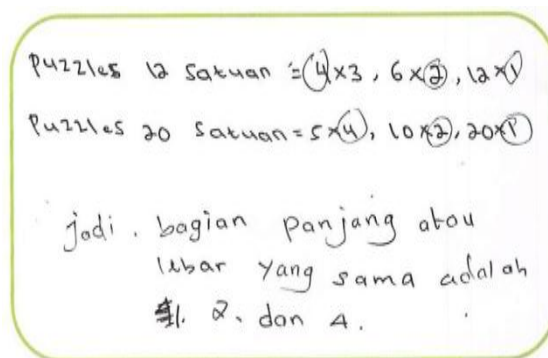 Puzzles 12 satuan = 4x3, 6x2, 12x1
Puzzles 20 satuan = 5x4, 10x2, 20x1
jadi, bagian panjang atau
lebar yang sama adalah
1. 2. dan 4.